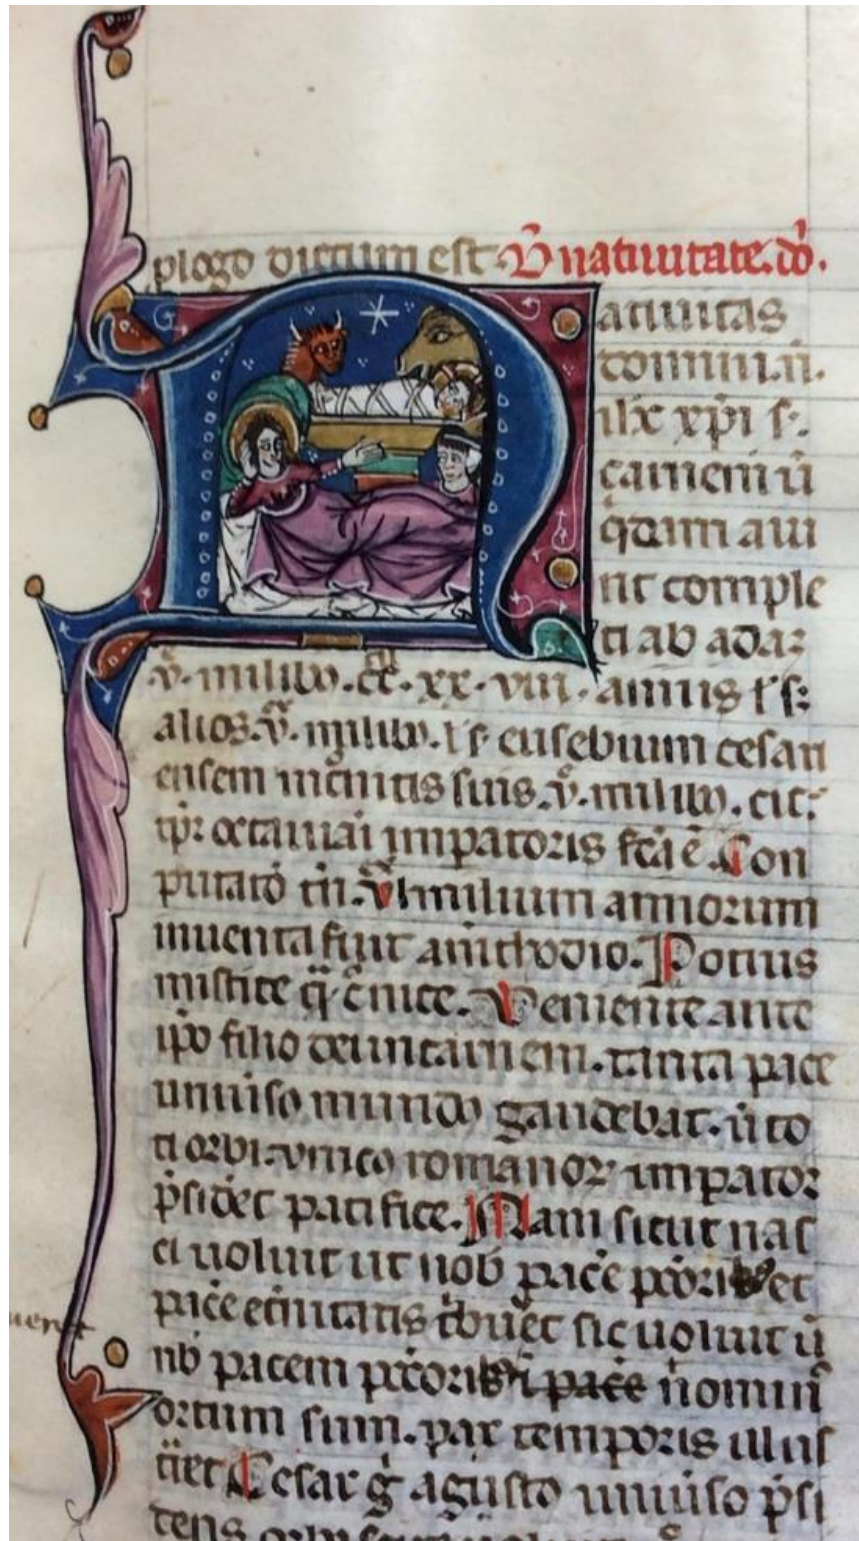 plogo dictum est. D' natiuitate. do.
Natiuitas
domini. n̄.
ih'x xp̄i s̄.
carnem ū
q̇dam aiu
nt comple
ti ab adaz
v. milib'. cc. xx. viii. annis ł s̄:
alios. v. milib'. ł s̄ eusebium cesari
ensem in c̄nicis suis. v. milib'. cic.
tp̄r octauiai impatoris fca ē. Con
putatō tn̄. vi milium annorum
inuenta fuit a methodio. Potius
mistice q̄ c̄nice. Veniente ante
ip̄o filio dei in carnem. tanta pace
uniuiso mundo gaudebat. ū to
ti orbi. vnico romanor impator
p̄sidet pacifice. Nam sicut nas
ci uoluit ut nob pacē et
pacē et̄nitatis tbuet sic uoluit ū
nb pacem i pace
ortum suum. pax temporis illus
tret Cesar g̊ agusto uniuiso p̄si
dens orbi